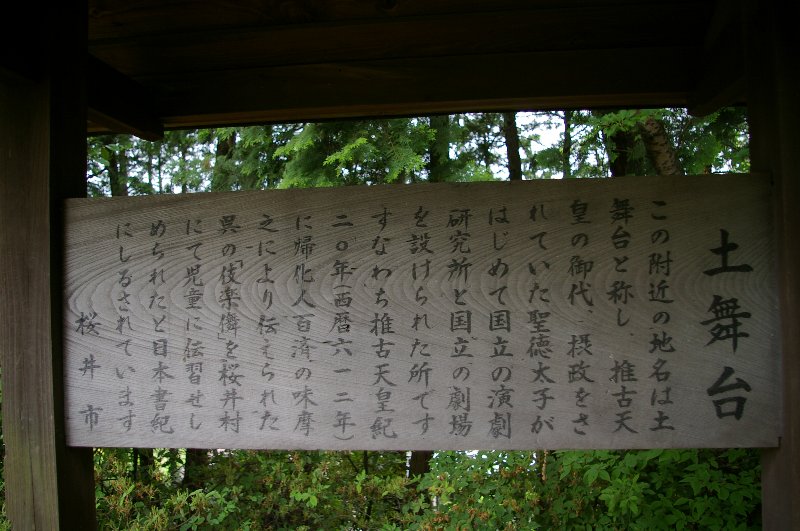 土舞台
この附近の地名は土
舞台と称し、推古天
皇の御代、摂政をさ
れていた聖徳太子が
はじめて国立の演劇
研究所と国立の劇場
を設けられた所です
すなわち推古天皇紀
二〇年(西暦六一二年)
に帰化人百済の味摩
之により伝えられた
呉の「伎楽儛」を桜井村
にて児童に伝習せし
められたと日本書紀
にしるされています
桜井市